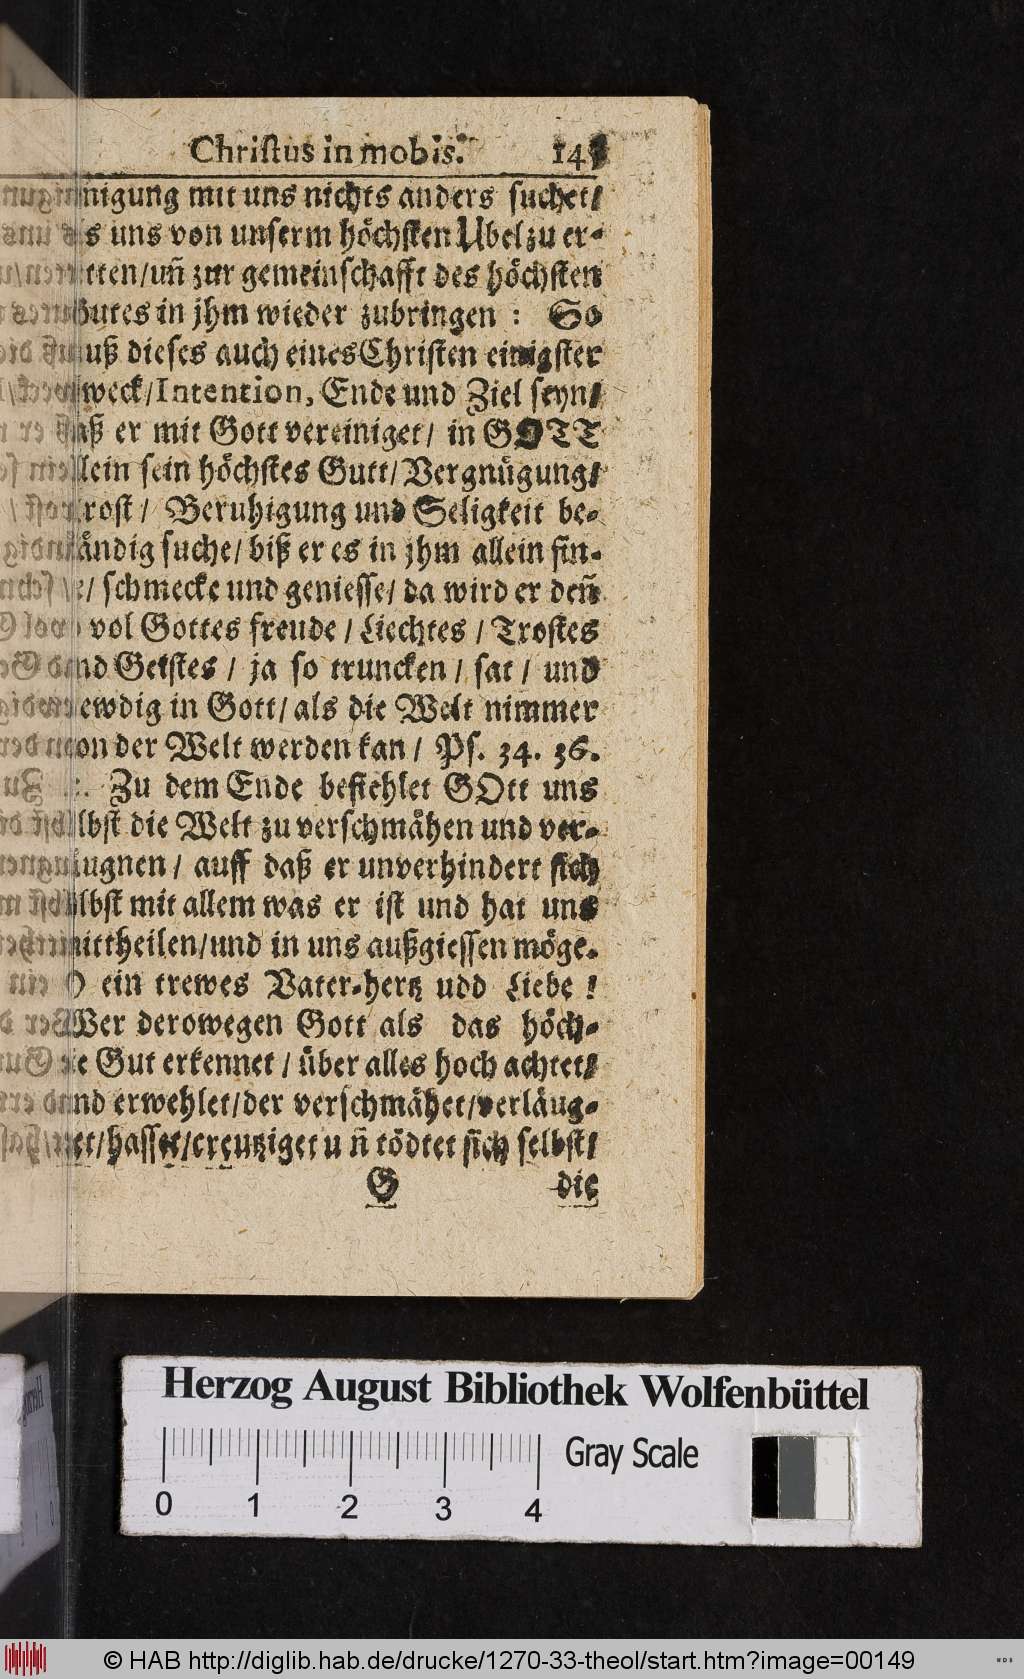 Christus in mobis. 145
nigung mit uns nichts anders suchet/
s uns von unserm höchsten Übel zu er-
tten/uñ zur gemeinschafft des höchsten
Gutes in jhm wieder zubringen : So
uß dieses auch eines Christen einigster
weck/Intention, Ende und Ziel seyn/
aß er mit Gott vereiniget/ in GOTT
lein sein höchstes Gutt/Vergnügung/
rost/ Beruhigung und Seligkeit be-
ändig suche/ biß er es in jhm allein fin-
e/ schmecke und geniesse/ da wird er deñ
vol Gottes freude/Liechtes/Trostes
nd Geistes/ ja so truncken/ sat/ und
ewdig in Gott/ als die Welt nimmer
on der Welt werden kan/ Ps. 34. 36.
: Zu dem Ende befiehlet GOtt uns
lbst die Welt zu verschmähen und ver-
ugnen/ auff daß er unverhindert sich
lbst mit allem was er ist und hat uns
ittheilen/und in uns außgiessen möge.
O ein trewes Vater-hertz udd Liebe !
Wer derowegen Gott als das höch-
e Gut erkennet/ über alles hoch achtet/
nd erwehlet/der verschmähet/verläug-
et/hasset/creutziget uñ tödtet sich selbst/
G die
Herzog August Bibliothek Wolfenbüttel
0 1 2 3 4 Gray Scale
© HAB http://diglib.hab.de/drucke/1270-33-theol/start.htm?image=00149